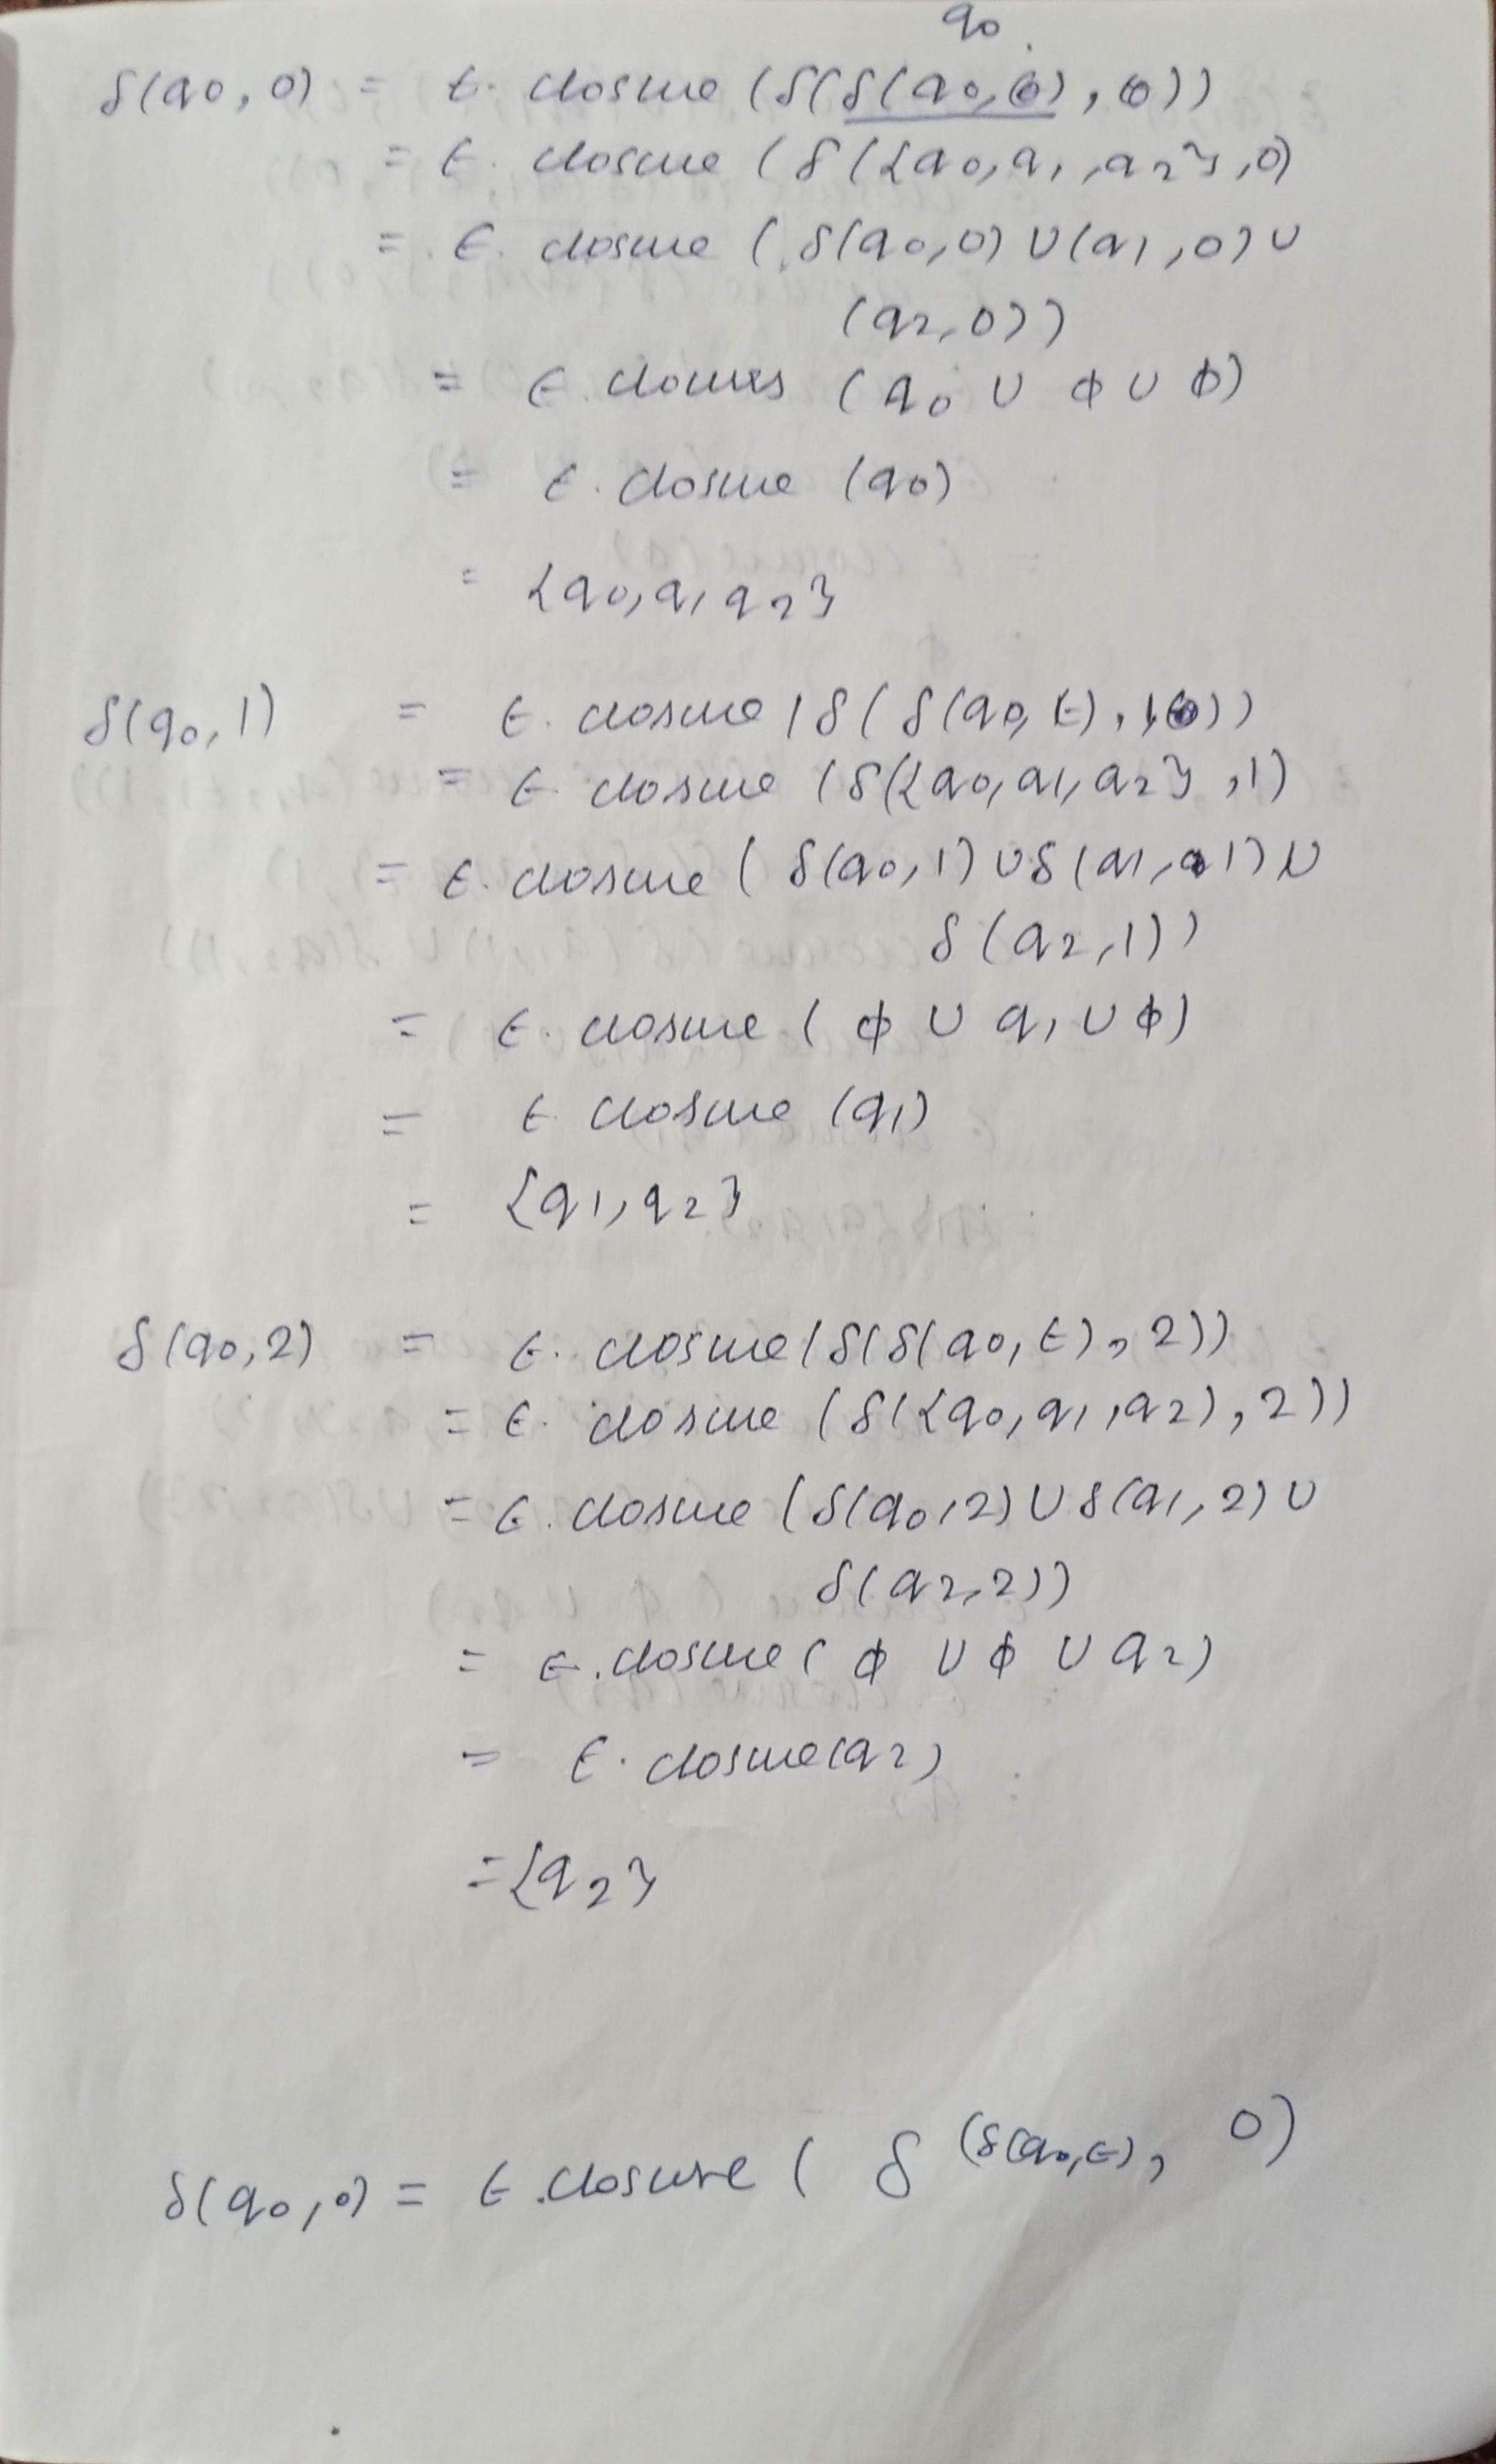 q0
δ(q0,0) = ε. closure (δ(δ(q0,ε),0))
= ε. closure (δ({q0,q1,q2},0)
= ε. closure (δ(q0,0) ∪ (q1,0) ∪
(q2,0))
= ε. closures (q0 ∪ ϕ ∪ ϕ)
= ε. closure (q0)
= {q0,q1 q2}
δ(q0,1) = ε. closure (δ(δ(q0,ε),1))
= ε closure (δ({q0,q1,q2},1)
= ε. closure (δ(q0,1) ∪ δ(q1,1) ∪
δ(q2,1))
= ε. closure (ϕ ∪ q1 ∪ ϕ)
= ε closure (q1)
= {q1,q2}
δ(q0,2) = ε. closure (δ(δ(q0,ε),2))
= ε. closure (δ({q0,q1,q2),2))
= ε. closure (δ(q0,2) ∪ δ(q1,2) ∪
δ(q2,2))
= ε. closure (ϕ ∪ ϕ ∪ q2)
= ε. closure(q2)
= {q2}
δ(q0,0) = ε. closure ( δ (δ(q0,ε), 0)